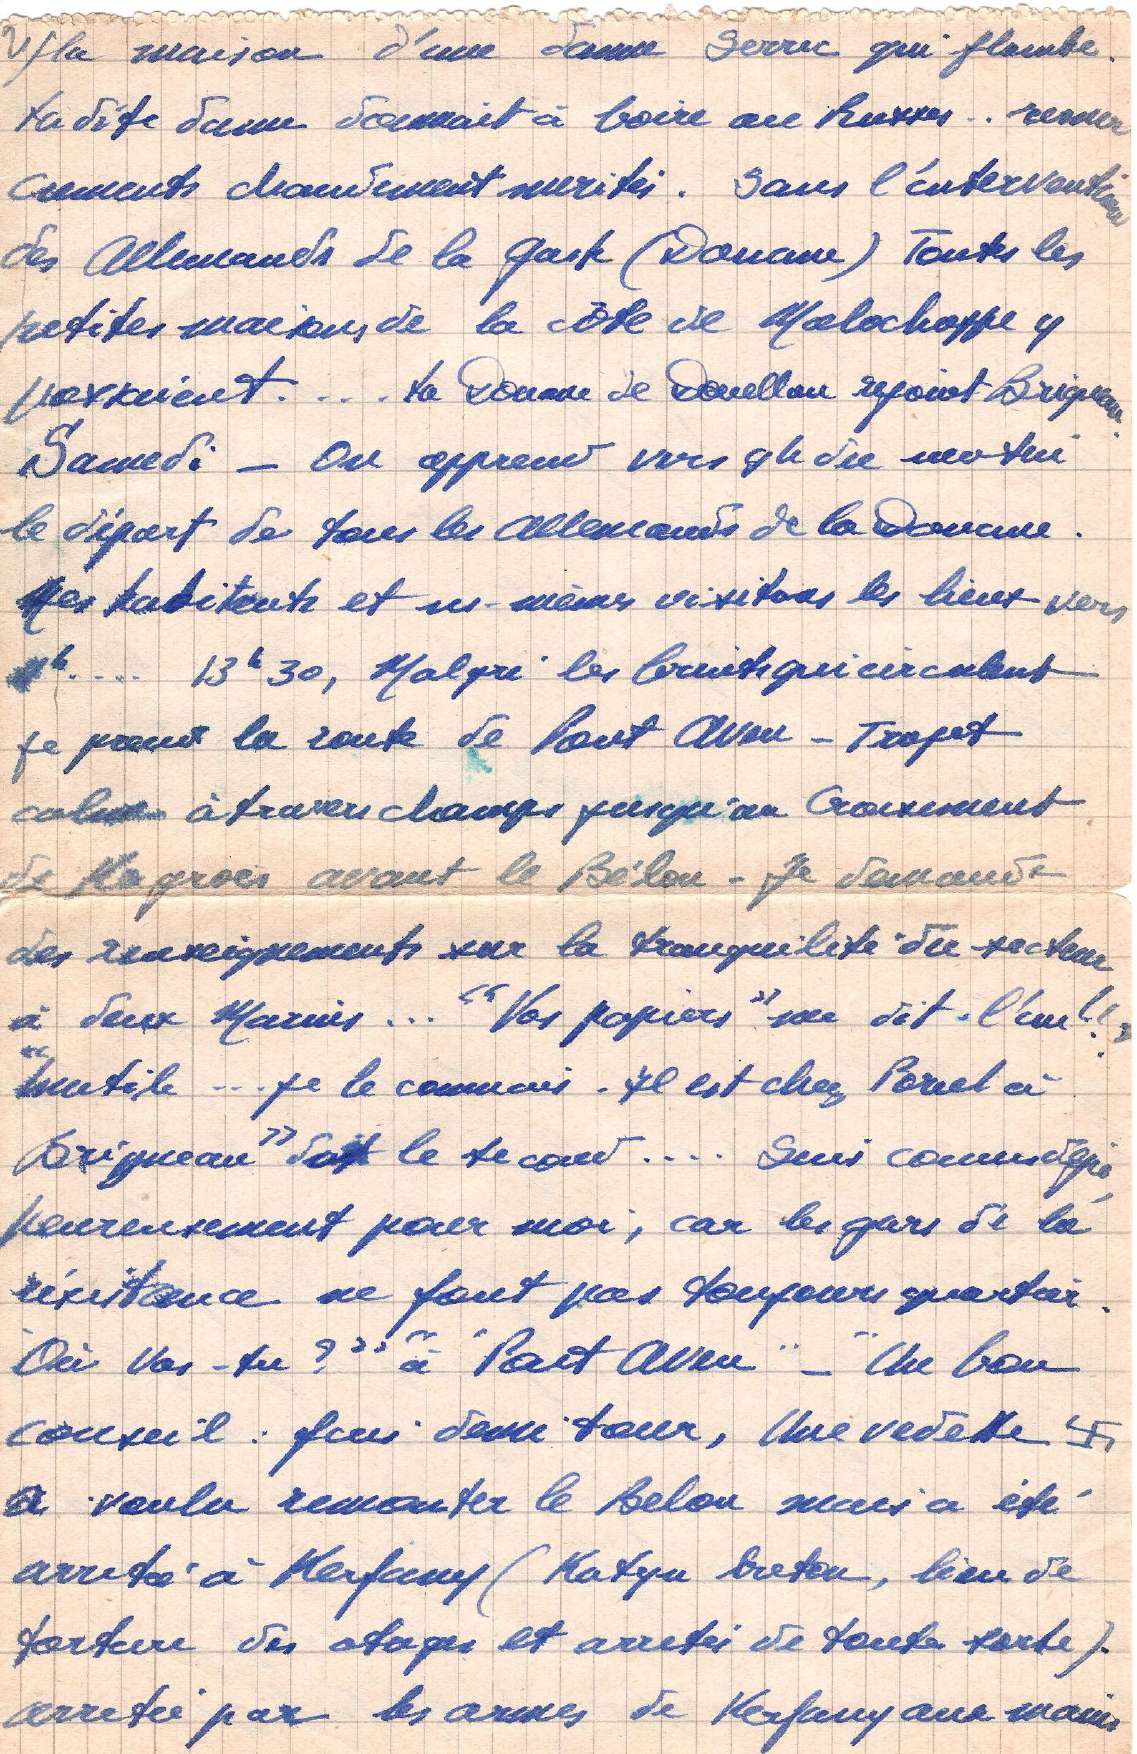 2/ la maison d'une dame Serre qui flambe.
La dite dame donnait à boire au Russes.. remer
ciements chaudement merités. Sans l'intervention
des Allemands de la Gast (Douane) Toutes les
petites maisons de la côte de Malachappe y
passaient..... La Douane de Douellan rejoint Brigneau.
Samedi – On apprend vers 9h du matin
le départ de tous les Allemands de la Douane.
Les habitants et ns-mêmes visitons les lieux vers
.... 13h30, Malgré les bruits qui circulent
je prend la route de Pont Aven – Trajet
calme à travers champs jusqu'au Croisement
de avant le Bélon – Je demande
des renseignements sur la tranquilité du secteur
à deux Marins... "Vos papiers" me dit-l'un!!
"Inutile ... je le connais. Il est chez Portal à
Brigneau" dit le second.... Suis connu
heureusement pour moi, car les gars de la
résistance ne font pas toujours quartier.
"Où vas-tu?" "à Pont Aven" – "Un bon
conseil: fais demi tour, Une vedette 卐
a voulu remonter le Belon mais a été
arretée à Kerfany (Katyn breton, lieu de
torture des otages et arretés de toutes sorte).
arretée par les armes de Kerfany aux mains